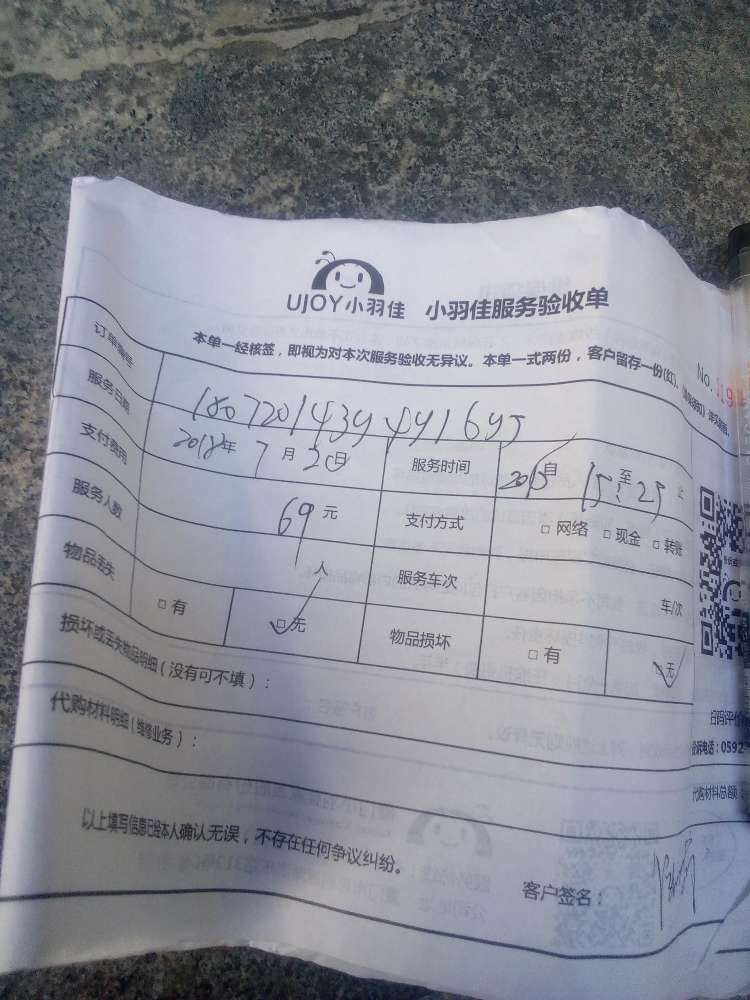 UJOY小羽佳 小羽佳服务验收单
本单一经核签，即视为对本次服务验收无异议。本单一式两份，客户留存一份(红)，
No.
订单编号
服务日期 2018年 7月 20日 服务时间 自 至 15:25 止
支付费用 69元 支付方式 □网络 □现金 □转账
服务人数 1人 服务车次 车/次
物品丢失 □有 □无 物品损坏 □有 □无
损坏或丢失物品明细（没有可不填）：
代购材料明细（维修业务）：
扫码评价
投诉电话：0592
代购材料总金额
以上填写信息已经本人确认无误，不存在任何争议纠纷。
客户签名：